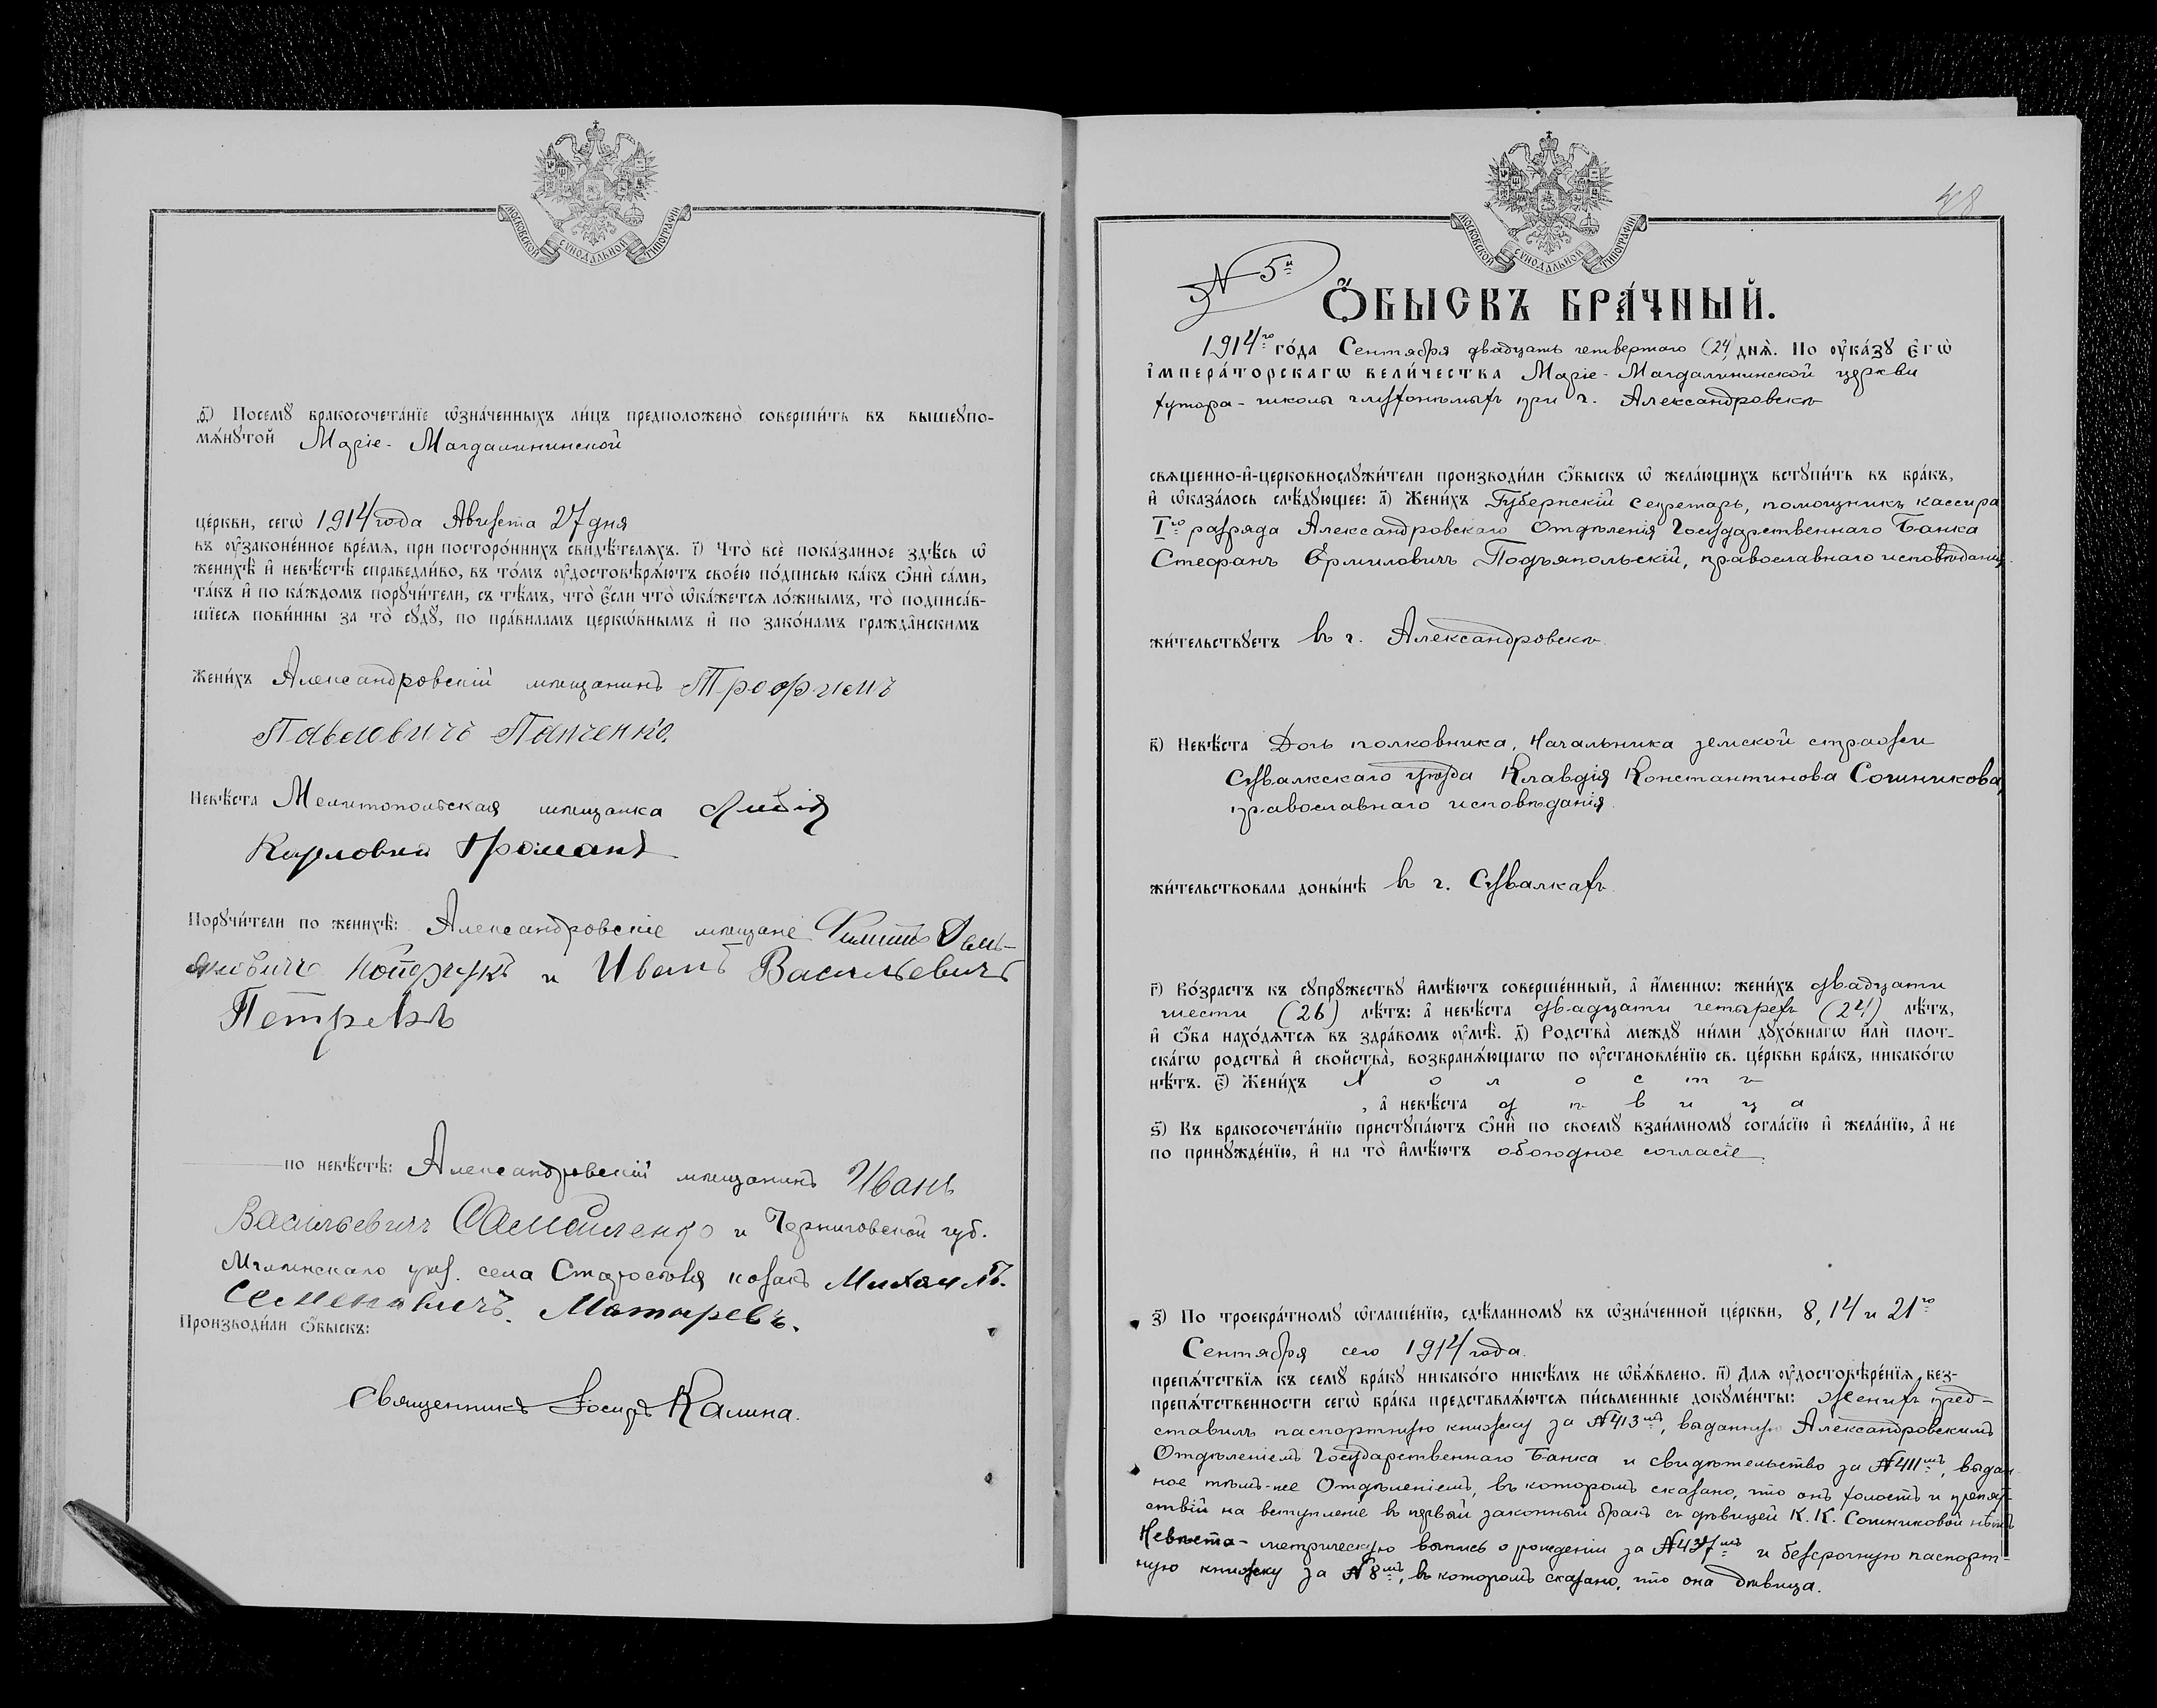 МОСКОВСКОЙ СѴНОДАЛЬНОЙ ТИПОГРАФІИ
ѳ҃) Посемꙋ бракосочета́нїе ѡ҆зна́ченныхъ ли́цъ предположено̀ соверши́ть въ вышеꙋпо-
мѧ́нꙋтой Маріе-Магдалининской
це́ркви, сегѡ̀ 1914 года Августа 27 дня
въ ᲂу҆зако́ненное вре́мѧ, при посторо́ннихъ свидѣ́телѧхъ. і҃) Что̀ всѐ пока́занное здѣ́сь ѡ҆
женихѣ̀ и҆ невѣ́стѣ справедли́во, въ то́мъ ᲂу҆достовѣрѧ́ютъ свое́ю по́дписью ка́къ ѻ҆нѝ са́ми,
та́къ и҆ по ка́ждомъ порꙋчи́тели, съ тѣ́мъ, что̀ є҆́сли что̀ ѡ҆ка́жетсѧ ло́жнымъ, то̀ подписа́в-
шїесѧ пови́нны за то̀ сꙋдꙋ̀, по пра́виламъ церкѡ́внымъ и҆ по зако́намъ гражда̑нскимъ
Жени́хъ Александровскій мѣщанинъ Трофимъ
Павловичъ Панченко.
Невѣ́ста Мелитопольская мѣщанка Лидія
Карловна Громанъ
Порꙋчи́тели по женихѣ̀: Александровскіе мѣщане Филиппъ
и Иванъ Васильевичъ
Петревъ
по невѣ́стѣ: Александровскій мѣщанинъ Иванъ
Васильевичъ Самойленко и Черниговской губ.
Мглинскаго уѣз. села козакъ Михаилъ
Семеновичъ Матыревъ.
Производи́ли ѻ҆́быскъ:
Священникъ Іосифъ Калина.
МОСКОВСКОЙ СѴНОДАЛЬНОЙ ТИПОГРАФІИ
48
№ 5й
Ѻ҆́БЫСКЪ БРА́ЧНЫЙ.
1914го го́да Сентября двадцать четвертаго (24) днѧ̀. По ᲂу҆ка́зꙋ є҆гѡ̀
і҆мпера́торскагѡ вели́чества Маріе-Магдалининской церкви
хутора-школы глухонѣмыхъ при г. Александровскѣ
свѧщенно-и҆-церковнослꙋжи́тели производи́ли ѻ҆́быскъ ѡ҆ жела́ющихъ встꙋпи́ть въ бра́къ,
и҆ ѡ҆каза́лось слѣ́дꙋющее: а҃) Жени́хъ Губернскій секретарь, помощникъ кассира
Iго разряда Александровскаго Отдѣленія Государственнаго Банка
Стефанъ Ермиловичъ Подъяпольскій, православнаго исповѣданія,
жи́тельствꙋетъ въ г. Александровскѣ.
в҃) Невѣ́ста Дочь полковника, Начальника земской стражи
Сувалкскаго уѣзда Клавдія Константинова Сошникова,
православнаго исповѣданія.
жи́тельствовала доны́нѣ въ г. Сувалкахъ.
г҃) Во́зрастъ къ сꙋпрꙋ́жествꙋ и҆мѣ́ютъ соверше́нный, а҆ и҆́меннѡ: жени́хъ двадцати
шести (26) лѣ́тъ: а҆ невѣ́ста двадцати четырехъ (24) лѣ́тъ,
и҆ ѻ҆́ба нахо́дѧтсѧ въ здра́вомъ ᲂу҆мѣ̀. д҃) Родства̀ междꙋ ни́ми дꙋхо́внагѡ и҆лѝ плот-
ска́гѡ родства̀ и҆ свойства̀, возбранѧ́ющагѡ по ᲂу҆становле́нїю св. це́ркви бра́къ, никако́гѡ
нѣ́тъ. є҃) Жени́хъ х о л о с т ъ
, а҆ невѣ́ста д ѣ в и ц а
ѕ҃) Къ бракосочета́нїю пристꙋпа́ютъ ѻ҆нѝ по своемꙋ̀ взаи́мномꙋ согла́сїю и҆ жела́нїю, а҆ не
по принꙋжде́нїю, и҆ на то̀ и҆мѣ́ютъ обоюдное согласіе.
з҃) По троекра́тномꙋ ѡ҆глаше́нїю, сдѣ́ланномꙋ въ ѡ҆зна́ченной це́ркви, 8, 14 и 21го
Сентября сего 1914 года.
препѧ́тствїѧ къ семꙋ̀ бра́кꙋ никако́гѡ никѣ́мъ не ѡ҆б̾ѧ́влено. и҃) Длѧ ᲂу҆достовѣре́нїѧ без-
препѧ́тственности сегѡ̀ бра́ка представлѧ́ютсѧ пи́сьменные докꙋме́нты: Женихъ пред-
ставилъ паспортную книжку за № 413мъ, выданную Александровскимъ
Отдѣленіемъ Государственнаго Банка и свидѣтельство за № 411мъ, выдан-
ное тѣмъ-же Отдѣленіемъ, въ которомъ сказано, что онъ холостъ и препят-
ствій на вступленіе въ первый законный бракъ съ дѣвицей К. К. Сошниковой нѣтъ
Невѣста - метрическую выпись о рожденіи за № 437мъ и безсрочную паспорт-
ную книжку за № 8мъ, въ которомъ сказано, что она дѣвица.